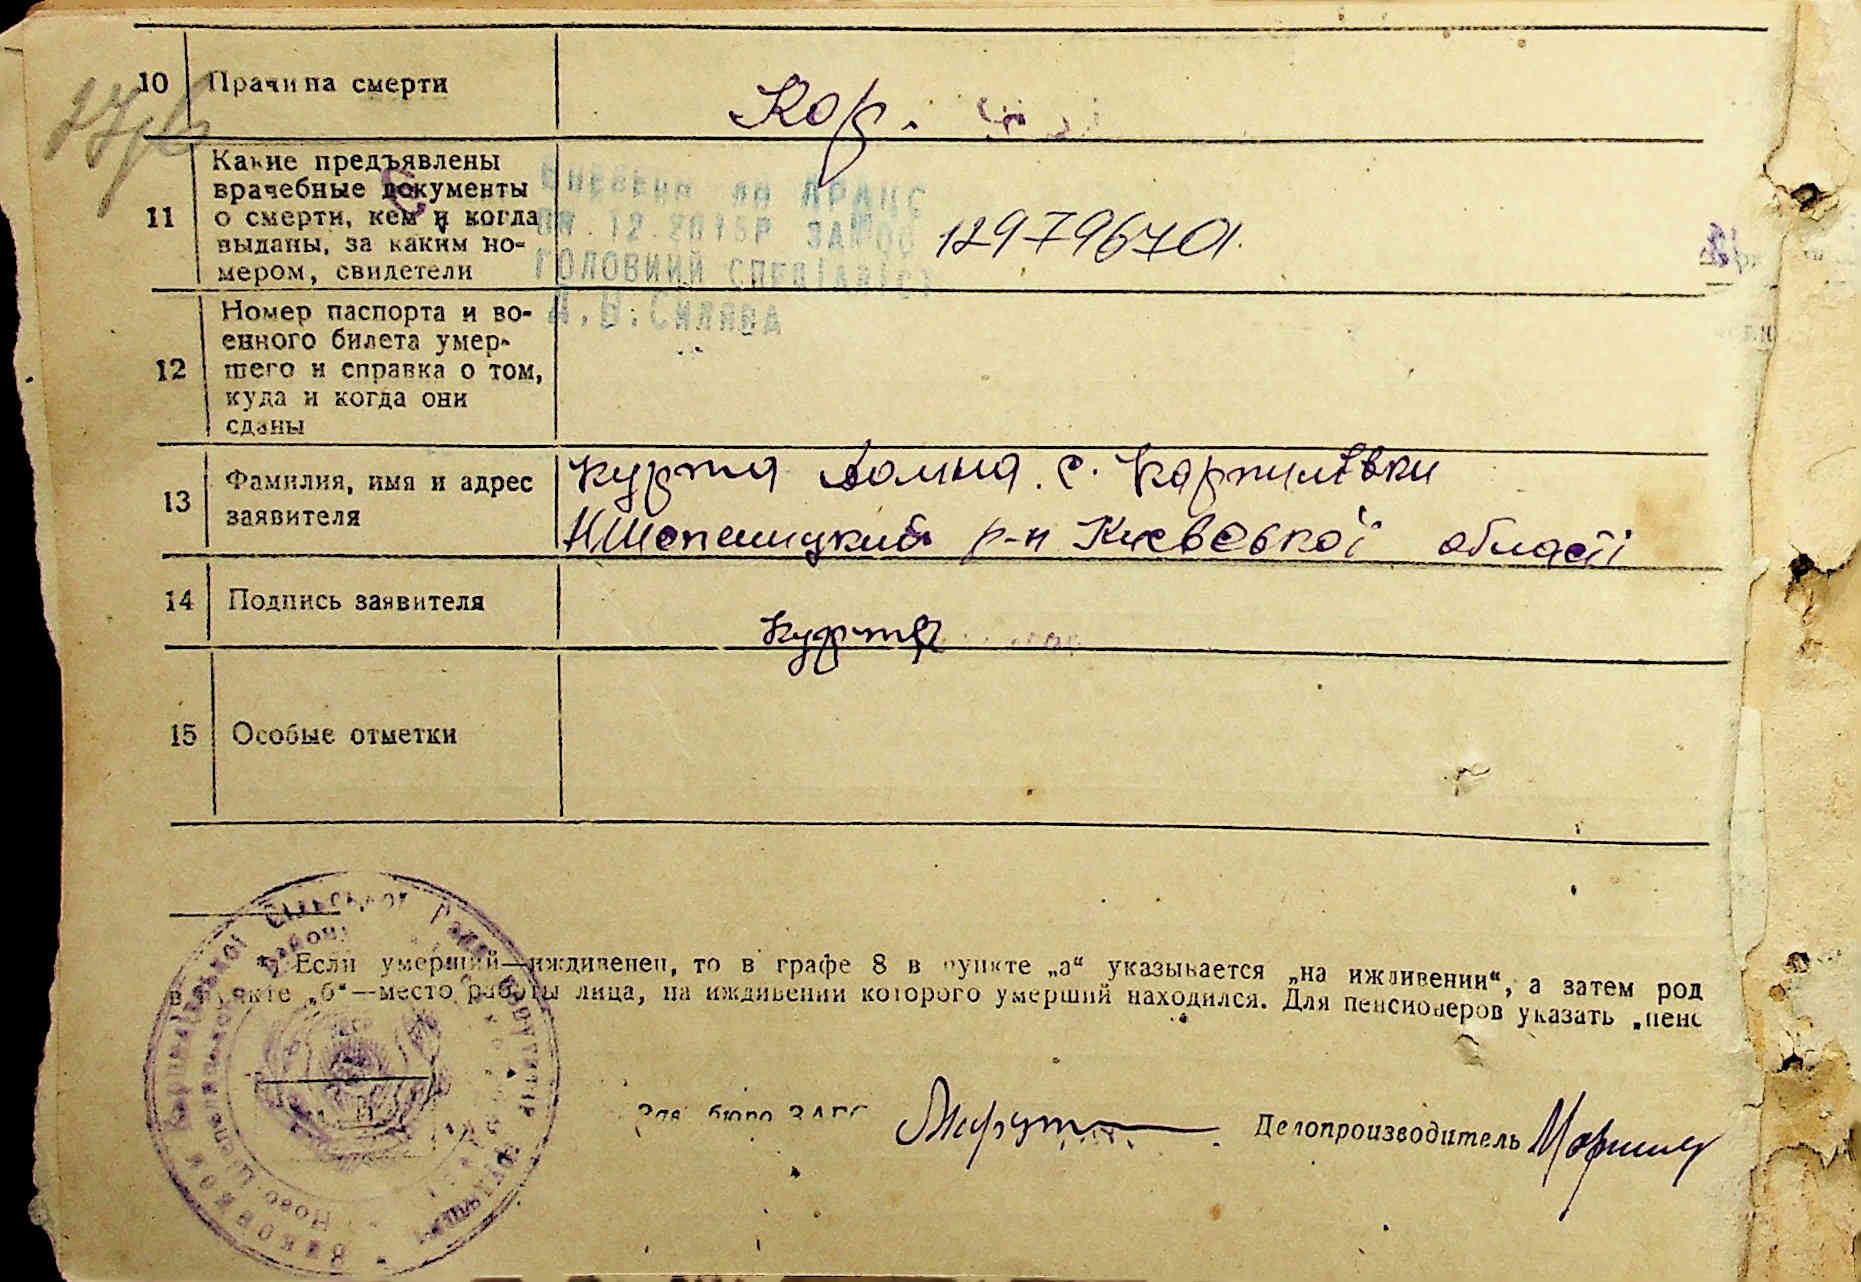 10 Причина смерти
Кор.
11 Какие предъявлены
врачебные документы
о смерти, кем и когда
выданы, за каким но-
мером, свидетели
12.2015Р
ГОЛОВНИЙ СПЕЦІАЛІСТ
129796701.
12 Номер паспорта и во-
енного билета умер-
шего и справка о том,
куда и когда они
сданы
13 Фамилия, имя и адрес
заявителя
Курта Домна. с. Карпилівки
НШепелицкий р-н Киевської області
14 Подпись заявителя
Курта
15 Особые отметки
*) Если умерший—иждивенец, то в графе 8 в пункте „а“ указывается „на иждивении“, а затем род
в пункте „б“—место работы лица, на иждивении которого умерший находился. Для пенсионеров указать „пенс
Зав. бюро ЗАГС
Делопроизводитель